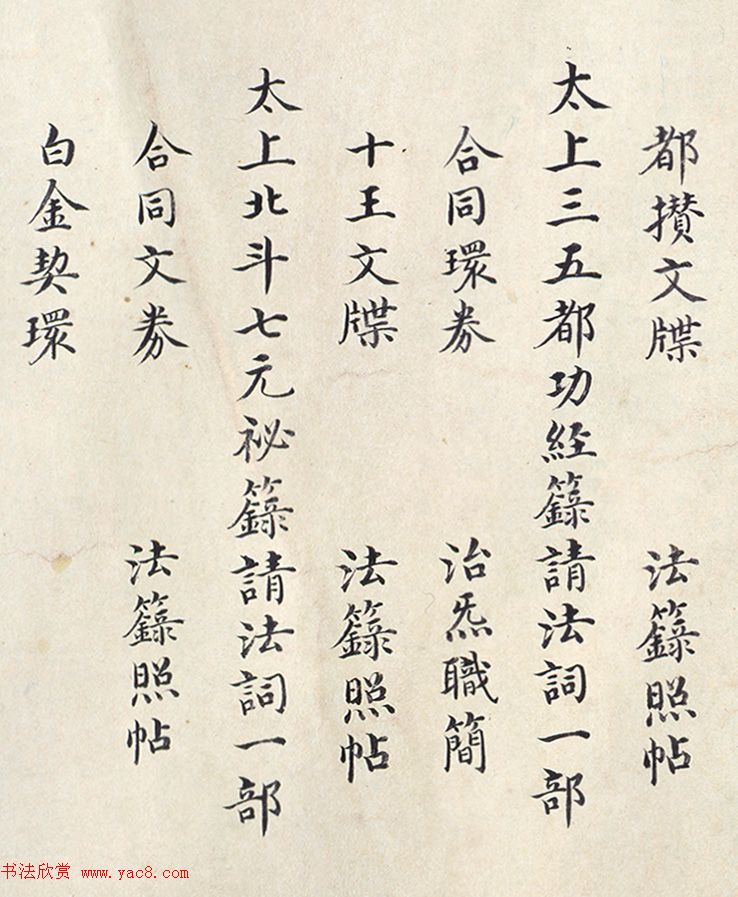 都攢文牒　法籙照帖
太上三五都功經籙請法詞一部
合同環券　治炁職簡
十王文牒　法籙照帖
太上北斗七元祕籙請法詞一部
合同文券　法籙照帖
白金契環
书法欣赏 www.yac8.com